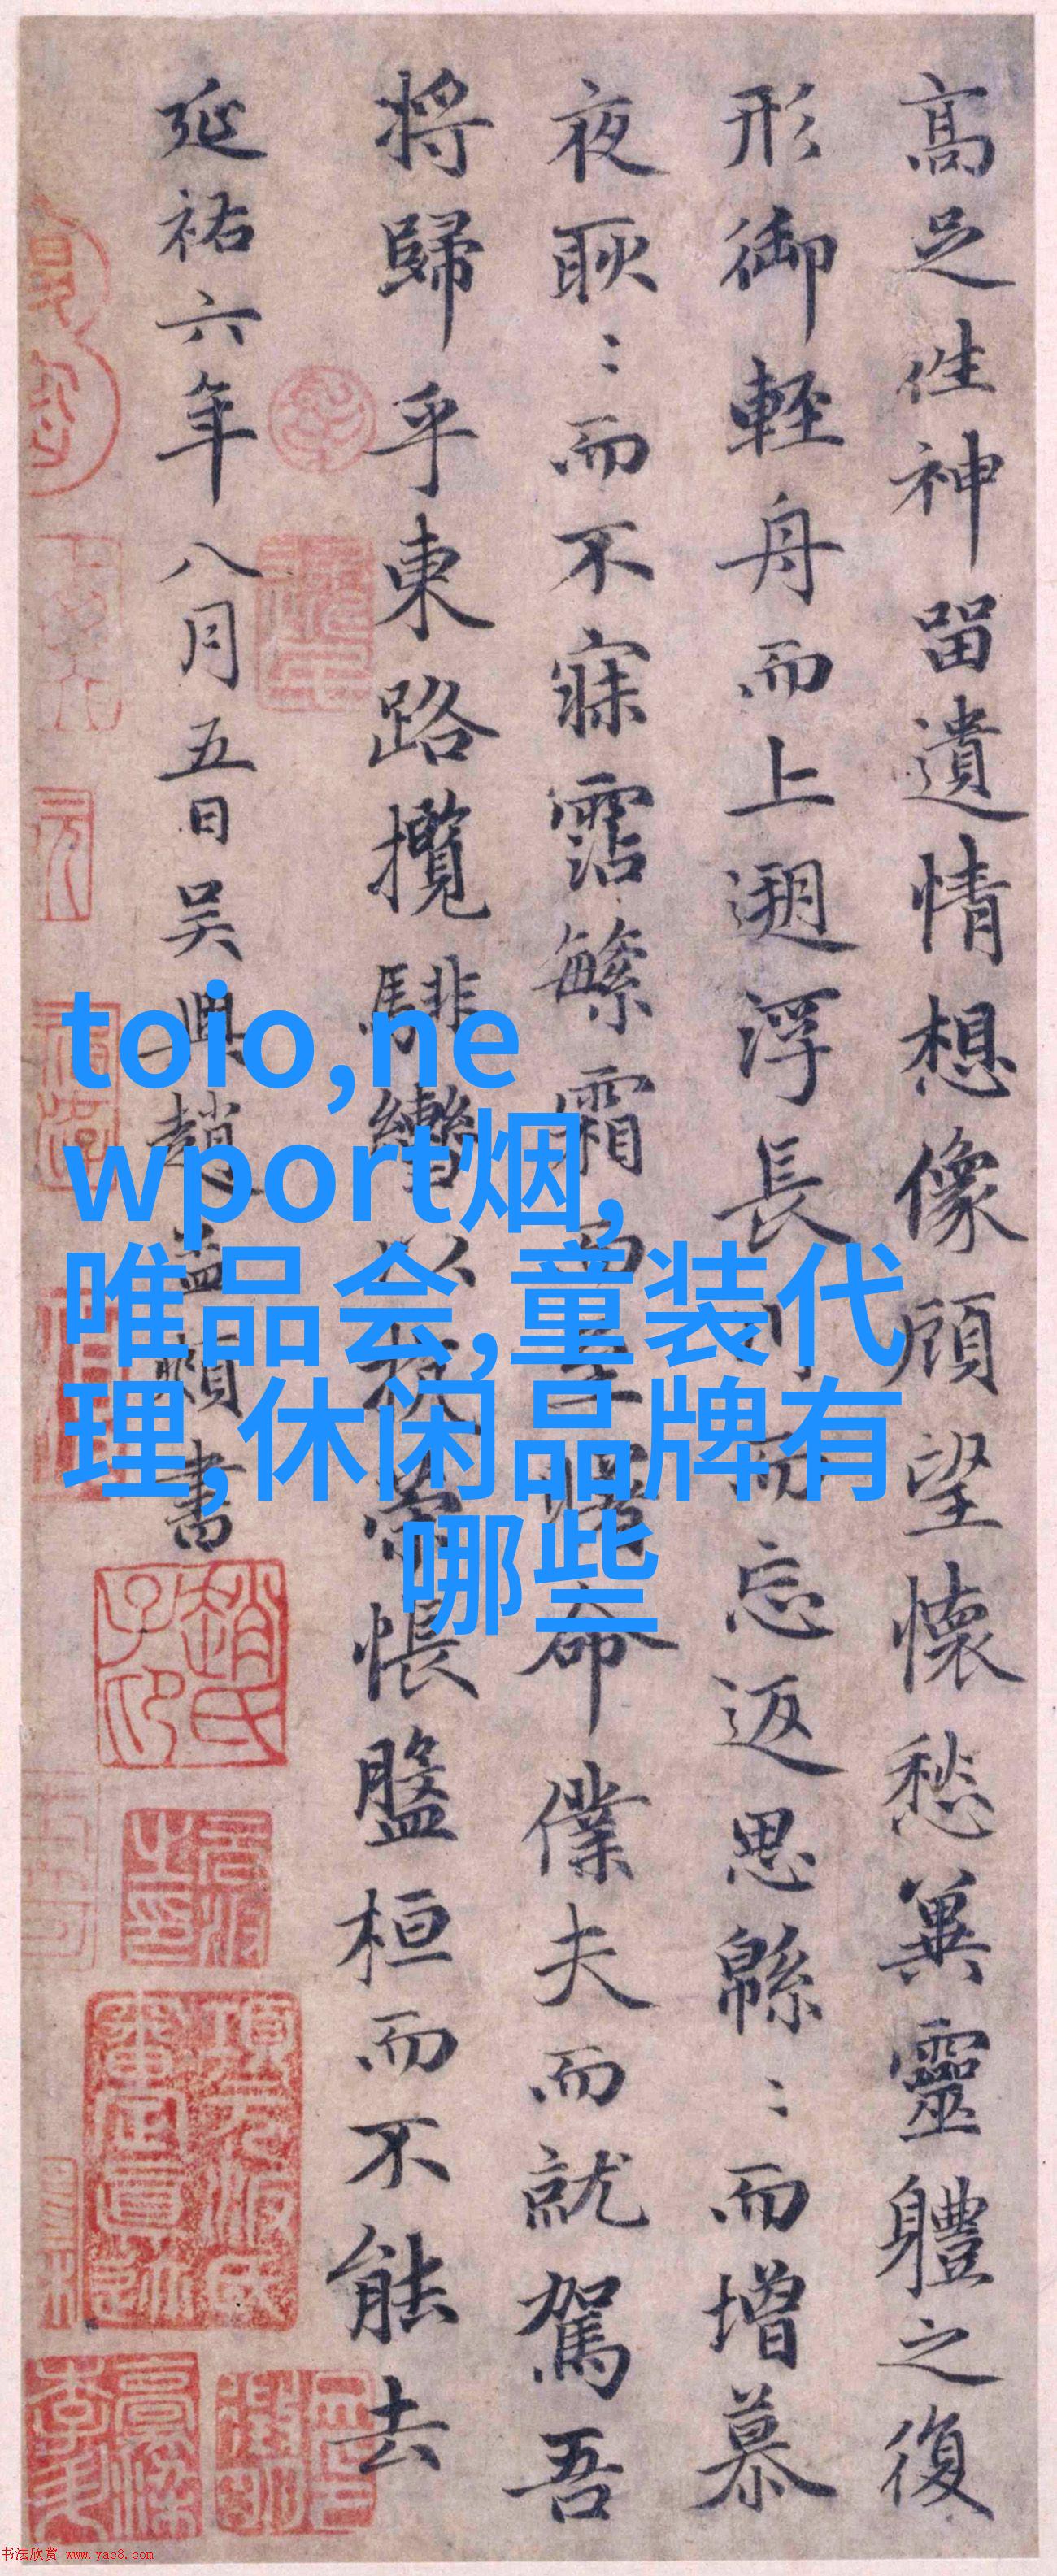 高足往神留遺情想像顧望懷愁冀靈軆之復
形御輕舟而上遡浮長川而忘返思緜〻而增慕
夜耿〻而不寐霑繁霜而至曙命僕夫而就駕吾
將歸乎東路攬騑轡以抗策悵盤桓而不能去
延祐六年八月五日吴興趙孟頫書
toio,ne
wport烟,
唯品会,童装代
理,休闲品牌有
哪些
趙氏子印
书法欣赏 www.yac8.com